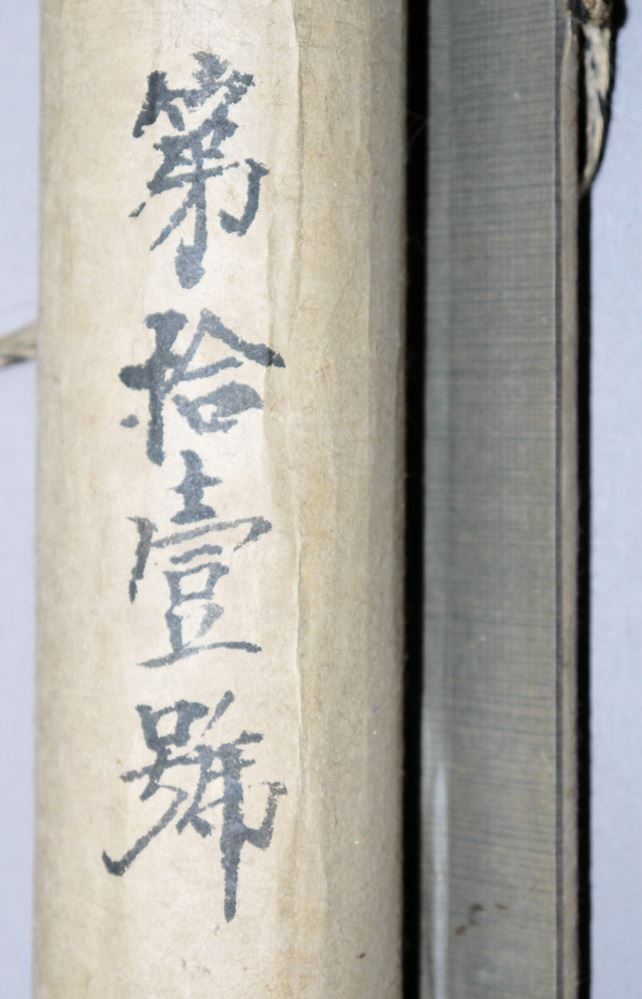 第拾壹號